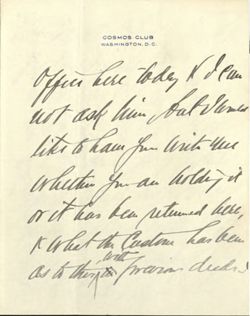 COSMOS CLUB
WASHINGTON, D.C.
Office here today & I can
not ask him, but I would
like to have you write me
whether you are holding it
or it has been returned here,
& what the custom has been
as to this, with previous deeds.